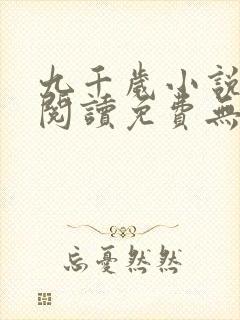 九千歲小說
閱讀免費無
忘憂然然